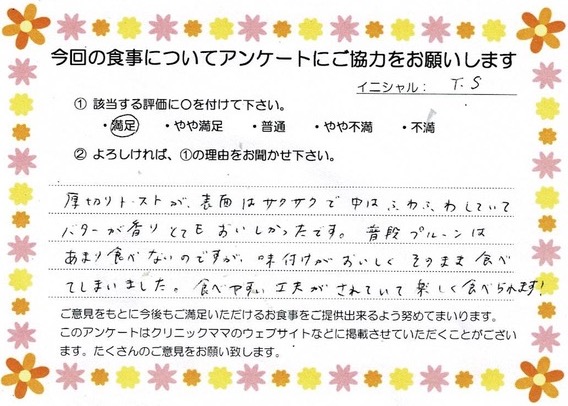 今回の食事についてアンケートにご協力をお願いします
イニシャル： T.S
① 該当する評価に〇を付けて下さい。
・満足 ・やや満足 ・普通 ・やや不満 ・不満
② よろしければ、①の理由をお聞かせ下さい。
厚切りトーストが、表面はサクサクで中はふわふわしていて
バターが香りとてもおいしかったです。普段プルーンは
あまり食べないのですが、味付けがおいしくそのまま食べ
てしまいました。食べやすい工夫がされていて楽しく食べられます!
ご意見をもとに今後もご満足いただけるお食事をご提供出来るよう努めてまいります。
このアンケートはクリニックママのウェブサイトなどに掲載させていただくことがござい
ます。たくさんのご意見をお願い致します。